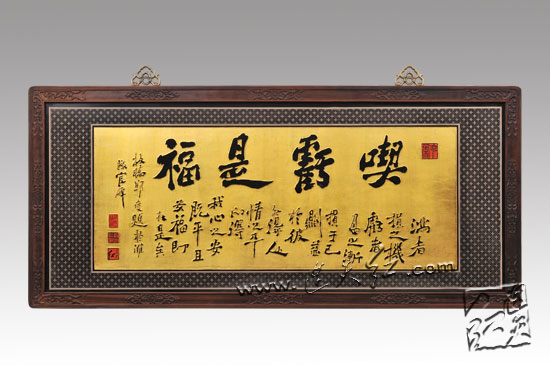 喫虧是福
滿者
損之機
虧者
盈之漸
損于己
則益
於彼
外得人
情之平
內得
我心之安
既平且
安福即
在是矣
板橋鄭燮題於濰
縣官署
www. .com